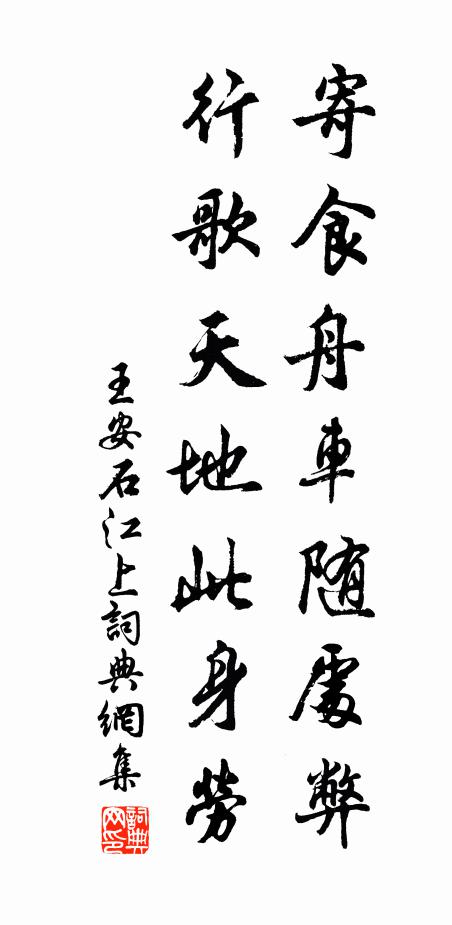 寄食舟車随處弊
行歌天地此身勞
王安石江上詞典網集
詞典网印